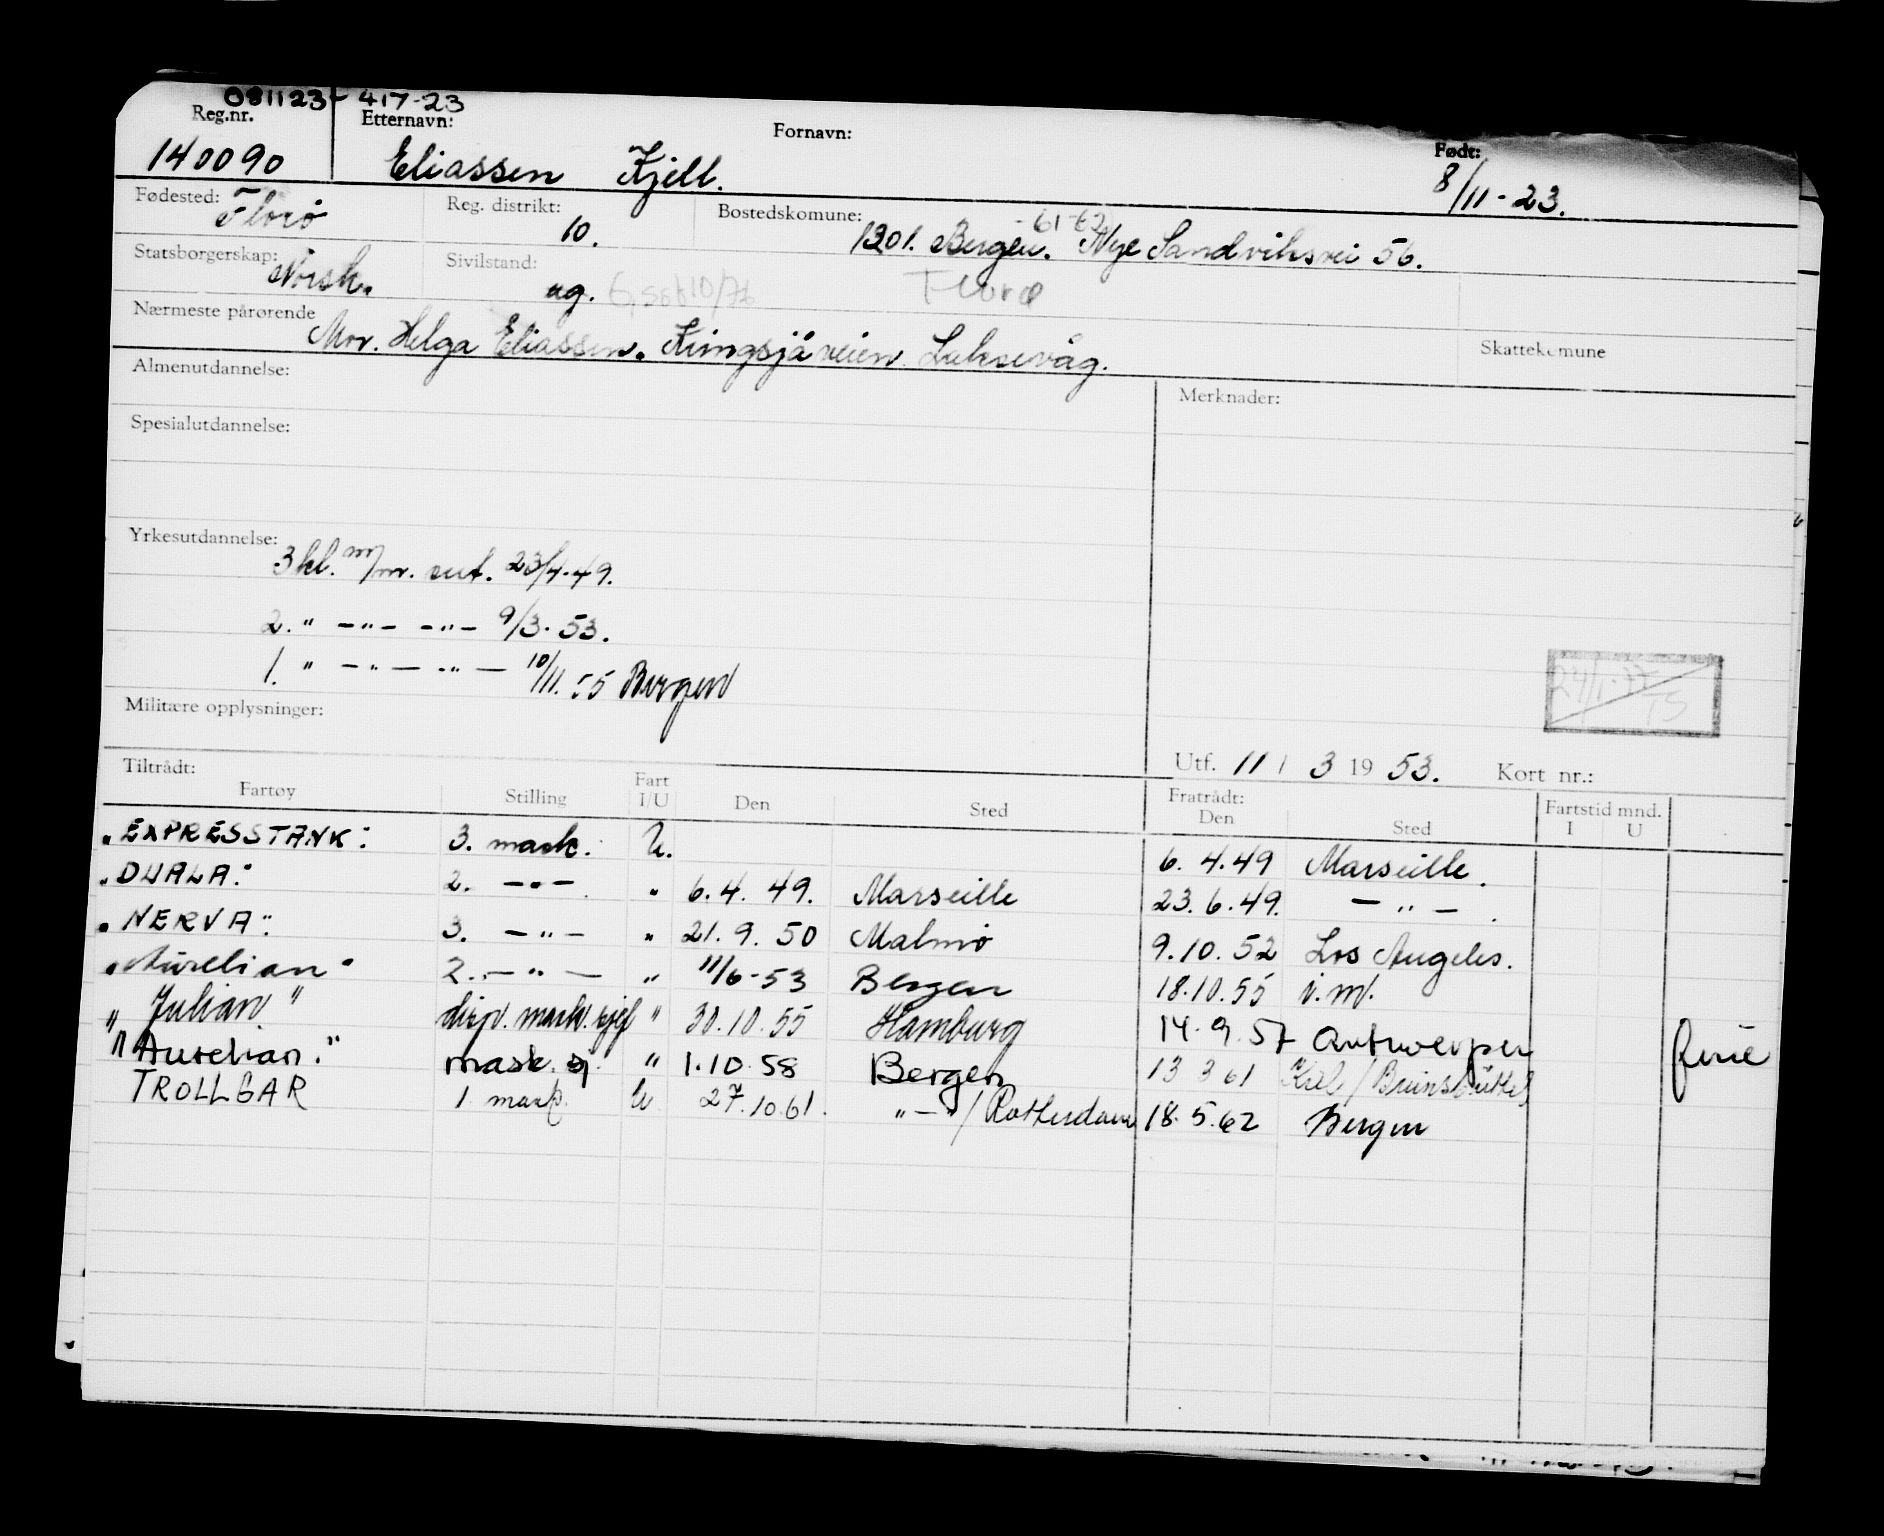 081123-417-23
Reg.nr. Etternavn: Fornavn: Født:
140090 Eliassen Kjell. 8/11-23.
Fødested: Florø Reg. distrikt: 10. Bostedskomune: 1301. Bergen. -61-62 Nye Sandviksvei 56.
Statsborgerskap: Norsk. Sivilstand: ug. 10/76 Florø
Nærmeste pårørende Mor. Helga Eliassen. Laksevåg. Skattekomune
Almenutdannelse: Merknader:
Spesialutdannelse:
Yrkesutdannelse:
3 kl. m/m. sert. 23/4-49.
2. " -"- -"- 9/3-53.
1. " -"- -"- 10/11.55 Bergen
24/1-77 TS
Militære opplysninger:
Utf. 11 / 3 19 53. Kort nr.:
Tiltrådt: Fratrådt: Fartstid mnd.
Fartøy Stilling Fart I/U Den Sted Den Sted I U
"EXPRESSTANK" 3. mask. U. 6.4.49 Marseille.
"DUALA" 2. -"- " 6.4.49. Marseille 23.6.49. -"-
"NERVA" 3. -"- " 21.9.50 Malmö 9.10.52 Los Angeles.
"Aurelian" 2. -"- " 11/6-53 Bergen 18.10.55
"Julian" disp. mask. sjef " 30.10.55 Hamburg 14.9.57 Antwerpen
"Aurelian." mask. sj. " 1.10.58 Bergen 13 3 61 Kiel/Brunsbüttel
TROLLGAR 1 mask. U 27.10.61. "-"/Rotterdam 18.5.62 Bergen